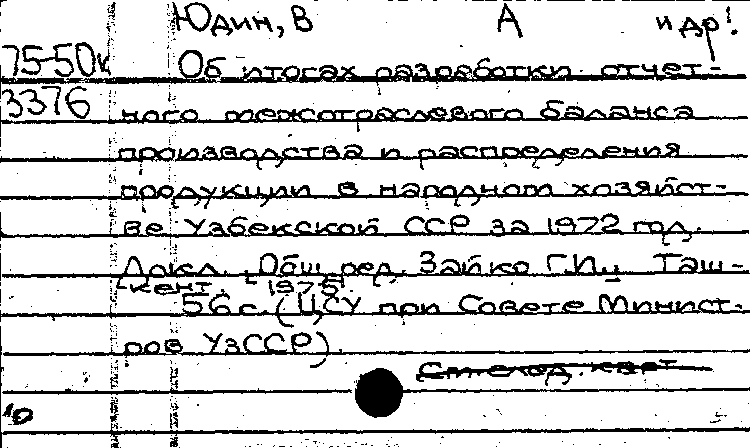 Юдин, В А и др.
75-50к Об итогах разработки отчет-
3376 ного межотраслевого баланса
производства и распределения
продукции в народном хозяйст-
ве Узбекской ССР за 1972 год.
Докл. Общ. ред. Зайко Г.И., Таш-
кент. 1975.
56 с. (ЦСУ при Совете Минист-
ров УзССР).
См след. карт